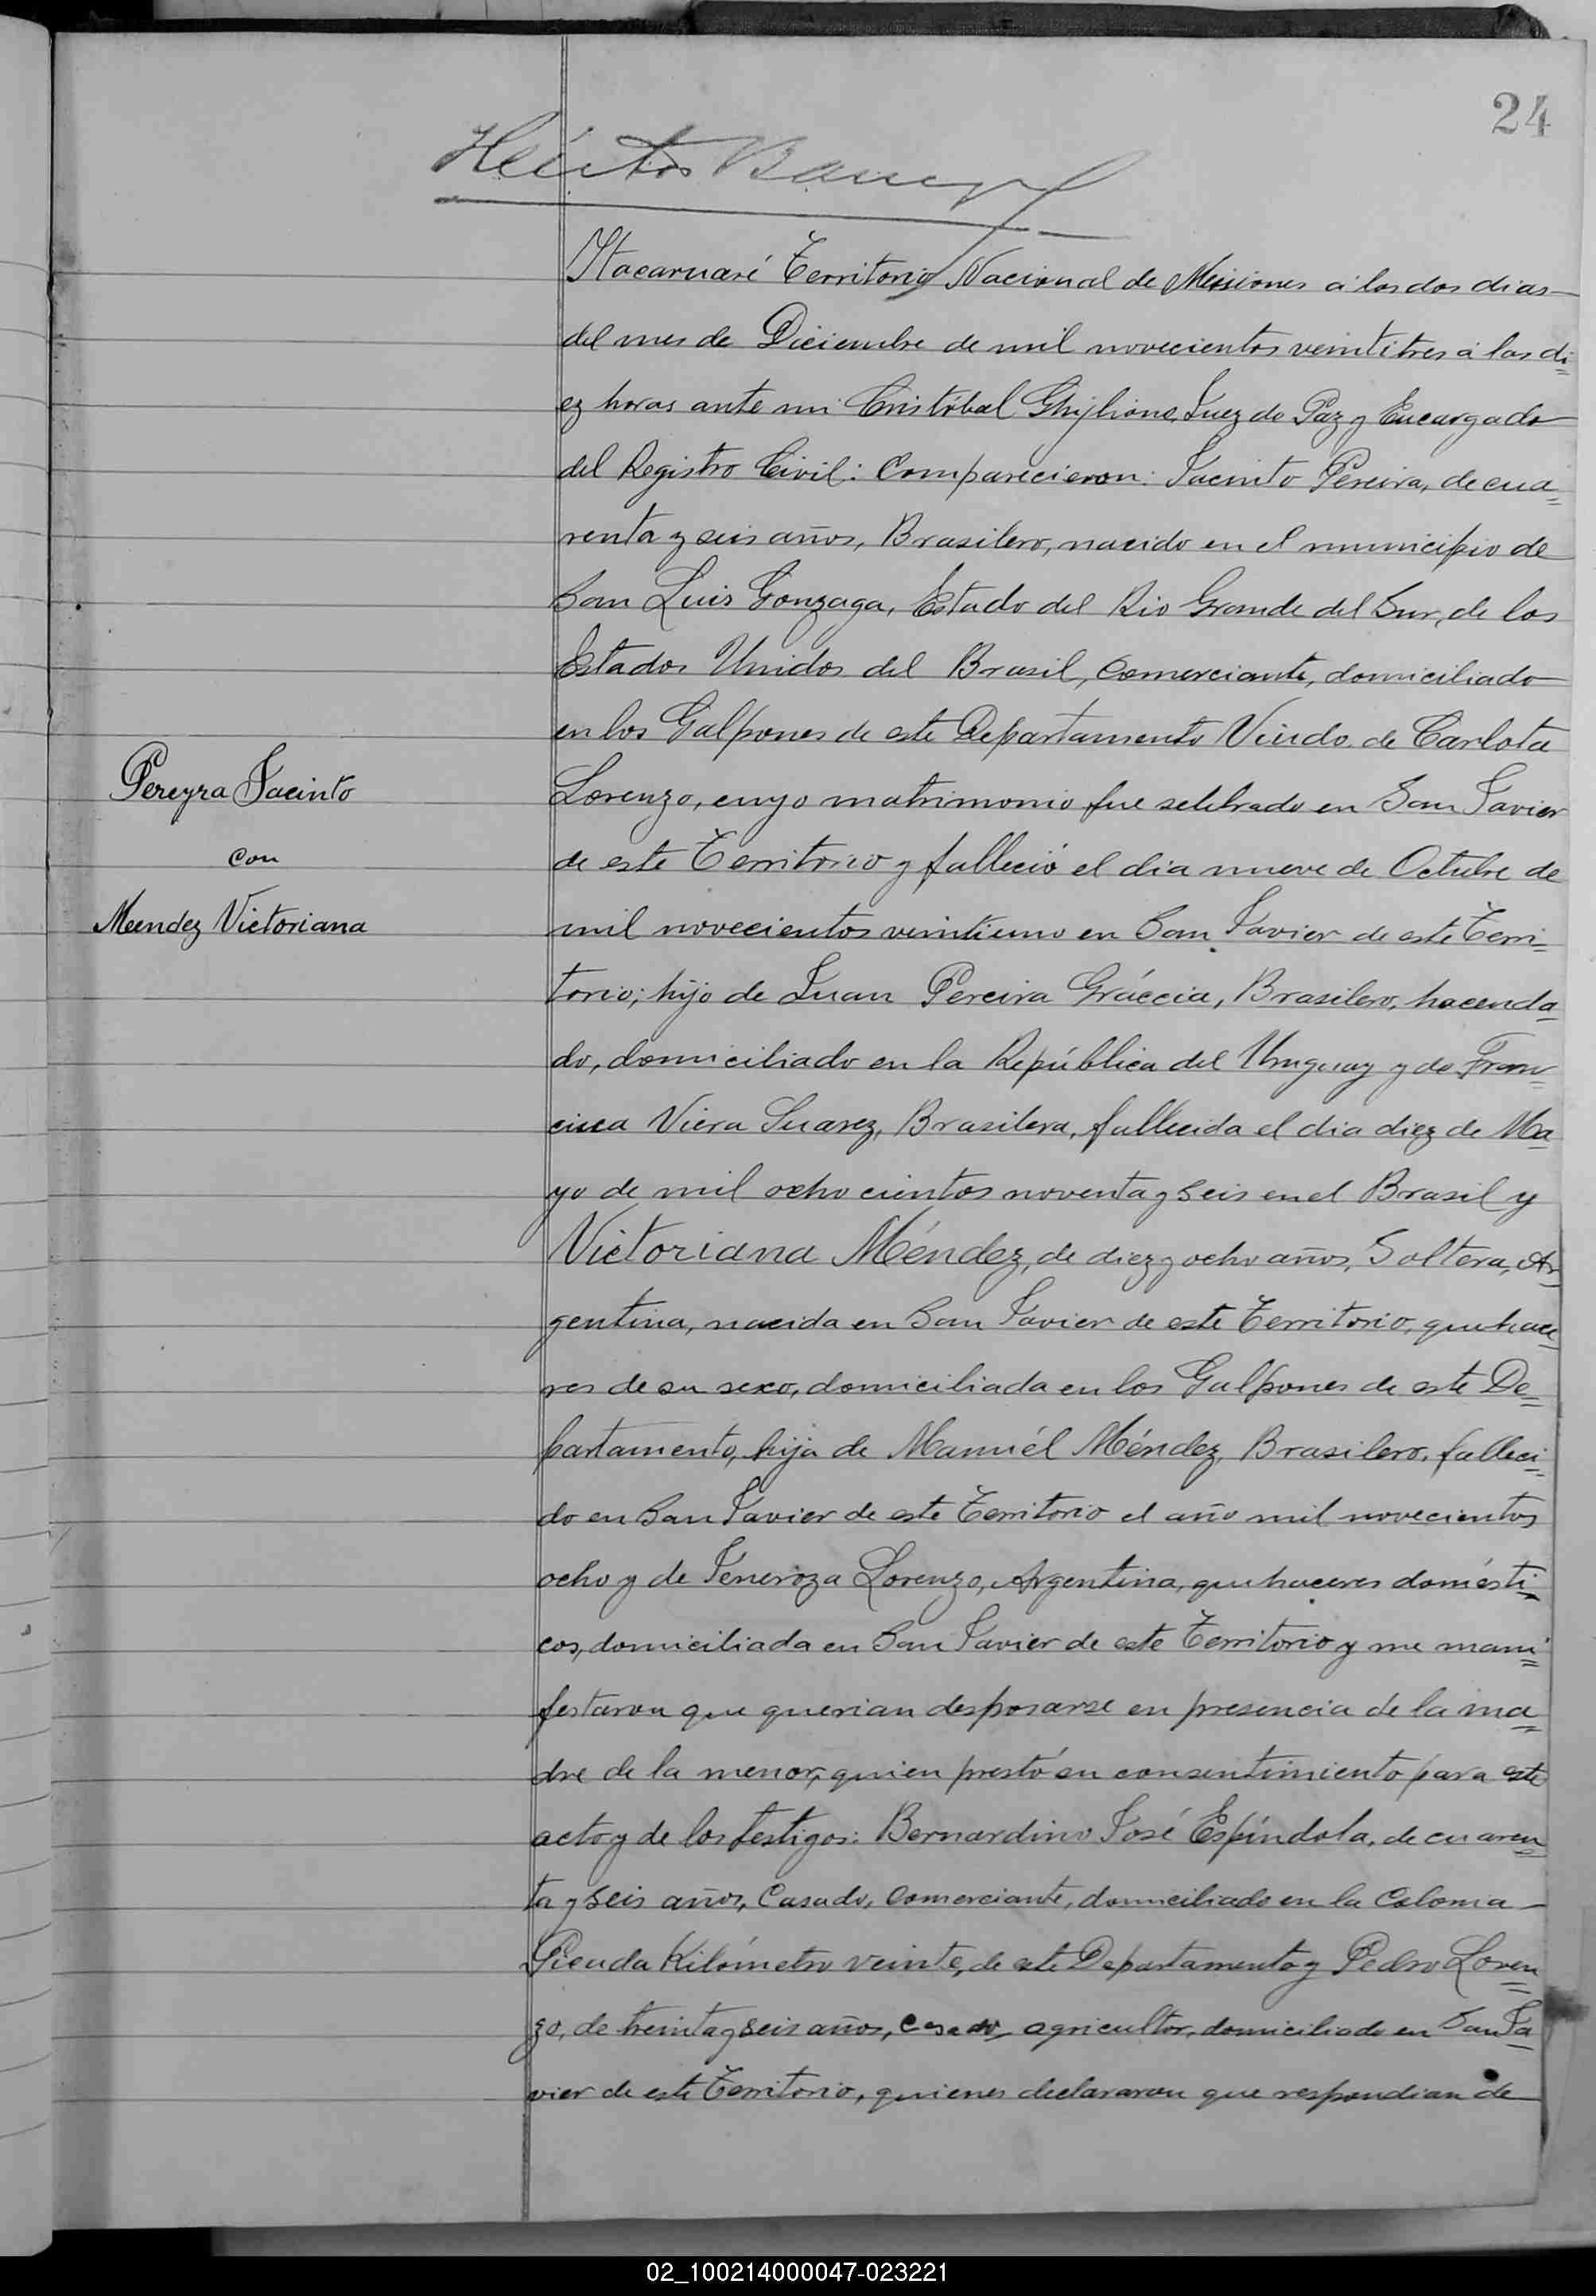 24
Itacaruaré Territorio Nacional de Misiones á los dos dias
del mes de Diciembre de mil novecientos veintitres á las di=
ez horas ante mi Cristóbal Ghiglione, Juez de Paz y Encargado
del Registro Civil: Comparecieron: Jacinto Pereira, de cua=
renta y seis años, Brasilero, nacido en el municipio de
San Luis Gonzaga, Estado del Rio Grande del Sur, de los
Estados Unidos del Brasil, Comerciante, domiciliado
en los Galpones de este Departamento Viudo de Carlota
Lorenzo, cuyo matrimonio fue selebrado en San Javier
de este Territorio y falleció el dia nueve de Octubre de
mil novecientos veintiuno en San Javier de este Terri=
torio; hijo de Juan Pereira Gráccia, Brasilero, hacenda=
do, domiciliado en la República del Uruguay y de Fran=
cisca Viera Suarez, Brasilera, fallecida el dia diez de Ma=
yo de mil ochocientos noventa y seis en el Brasil y
Victoriana Méndez, de diez y ocho años, Soltera, Ar=
gentina, nacida en San Javier de este Territorio, quehace=
res de su sexo, domiciliada en los Galpones de este De=
partamento, hija de Manuél Méndez, Brasilero, falleci=
do en San Javier de este Territorio el año mil novecientos
ocho y de Jeneroza Lorenzo, Argentina, quehaceres domésti=
cos, domiciliada en San Javier de este Territorio y me mani=
festaron que querian desposarse en presencia de la ma=
dre de la menor, quien prestó su consentimiento para este
acto y de los testigos: Bernardino José Espíndola, de cuaren=
ta y seis años, Casado, Comerciante, domiciliado en la Colonia
Kilómetro veinte, de este Departamento y Pedro Loren=
zo, de treinta y seis años, casado, agricultor, domiciliado en San Ja=
vier de este Territorio, quienes declararon que respondian de
Pereyra Jacinto
con
Mendez Victoriana
02_100214000047-023221